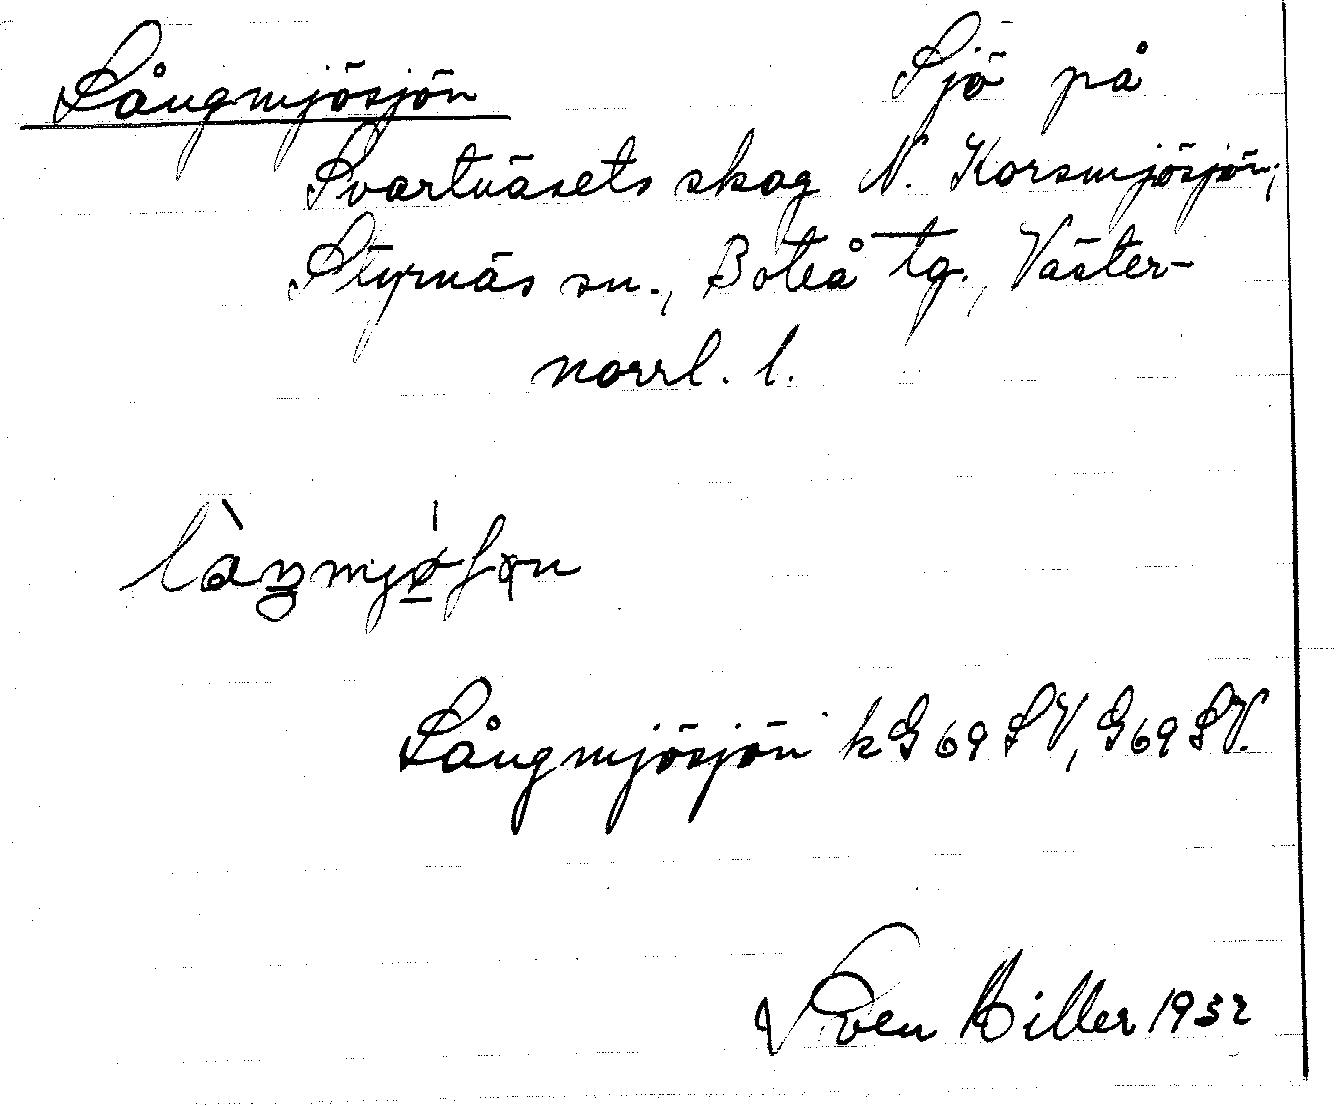 Långmjösjön Sjö på
Svartnäsets skog N. Korsmjösjön;
Styrnäs sn., Boteå tg., Väster-
norrl. l.
Långmjösjön kG69SV, G69SV.
Sven Hiller 1932